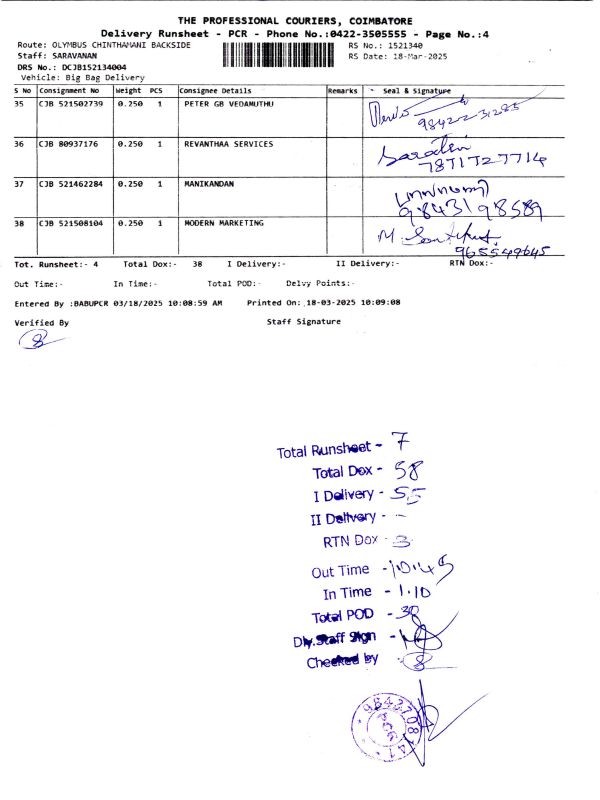 THE PROFESSIONAL COURIERS, COIMBATORE
Delivery Runsheet - PCR - Phone No.:0422-3505555 - Page No.:4
Route: OLYMBUS CHINTHAMANI BACKSIDE RS No.: 1521340
Staff: SARAVANAN RS Date: 18-Mar-2025
DRS No.: DCJB152134004
Vehicle: Big Bag Delivery
S No Consignment No Weight PCS Consignee Details Remarks Seal & Signature
35 CJB 521502739 0.250 1 PETER GB VEDAMUTHU
9842231285
36 CJB 80937176 0.250 1 REVANTHAA SERVICES
7871727714
37 CJB 521462284 0.250 1 MANIKANDAN
9843198589
38 CJB 521508104 0.250 1 MODERN MARKETING M.
9655549645
Tot. Runsheet:- 4 Total Dox:- 38 I Delivery:- II Delivery:- RTN Dox:-
Out Time:- In Time:- Total POD:- Delvy Points:-
Entered By :BABUPCR 03/18/2025 10:08:59 AM Printed On: 18-03-2025 10:09:08
Verified By Staff Signature
8
Total Runsheet - 7
Total Dox - 58
I Delivery - 55
II Delivery - -
RTN Dox - 3
Out Time - 10.45
In Time - 1.10
Total POD - 38
Dly.Staff Sign -
Checked by - 8
PCR